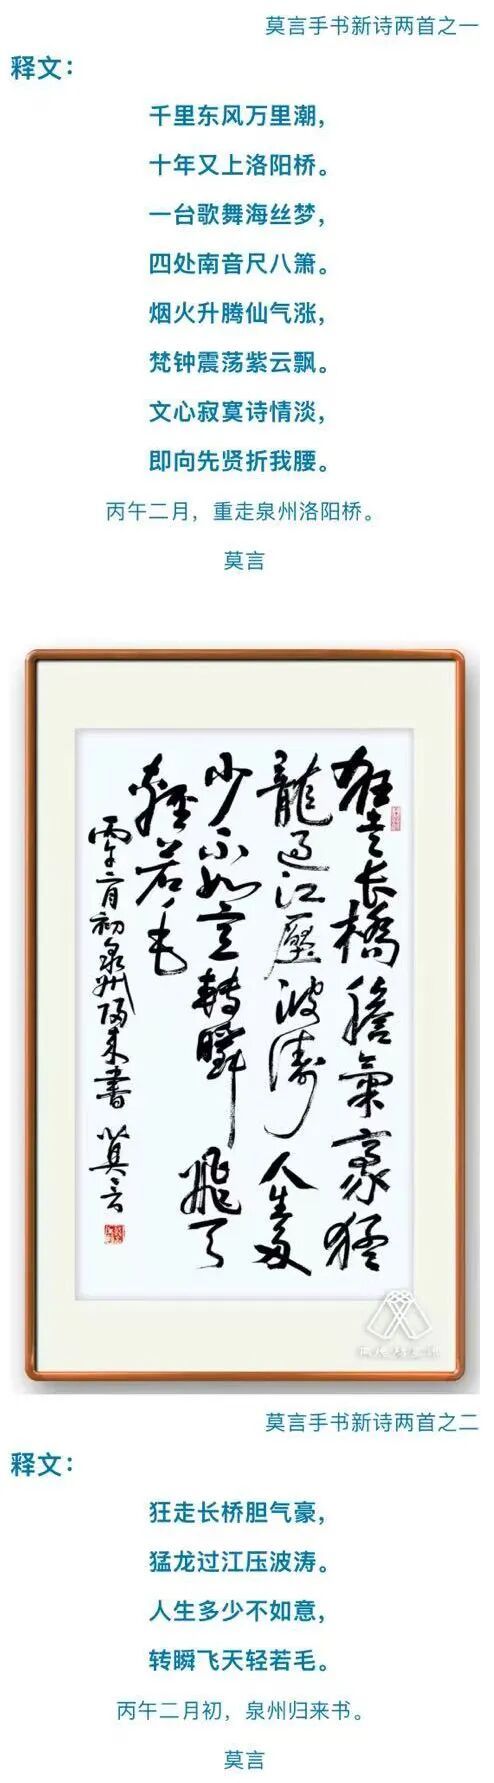 莫言手书新诗两首之一
释文：
千里东风万里潮，
十年又上洛阳桥。
一台歌舞海丝梦，
四处南音尺八箫。
烟火升腾仙气涨，
梵钟震荡紫云飘。
文心寂寞诗情淡，
即向先贤折我腰。
丙午二月，重走泉州洛阳桥。
莫言
狂走长橋膽氣豪猛
龍过江壓波涛人生多
少不如意轉瞬飛天
輕若毛
丙午二月初泉州归来書 莫言
莫言手书新诗两首之二
释文：
狂走长桥胆气豪，
猛龙过江压波涛。
人生多少不如意，
转瞬飞天轻若毛。
丙午二月初，泉州归来书。
莫言